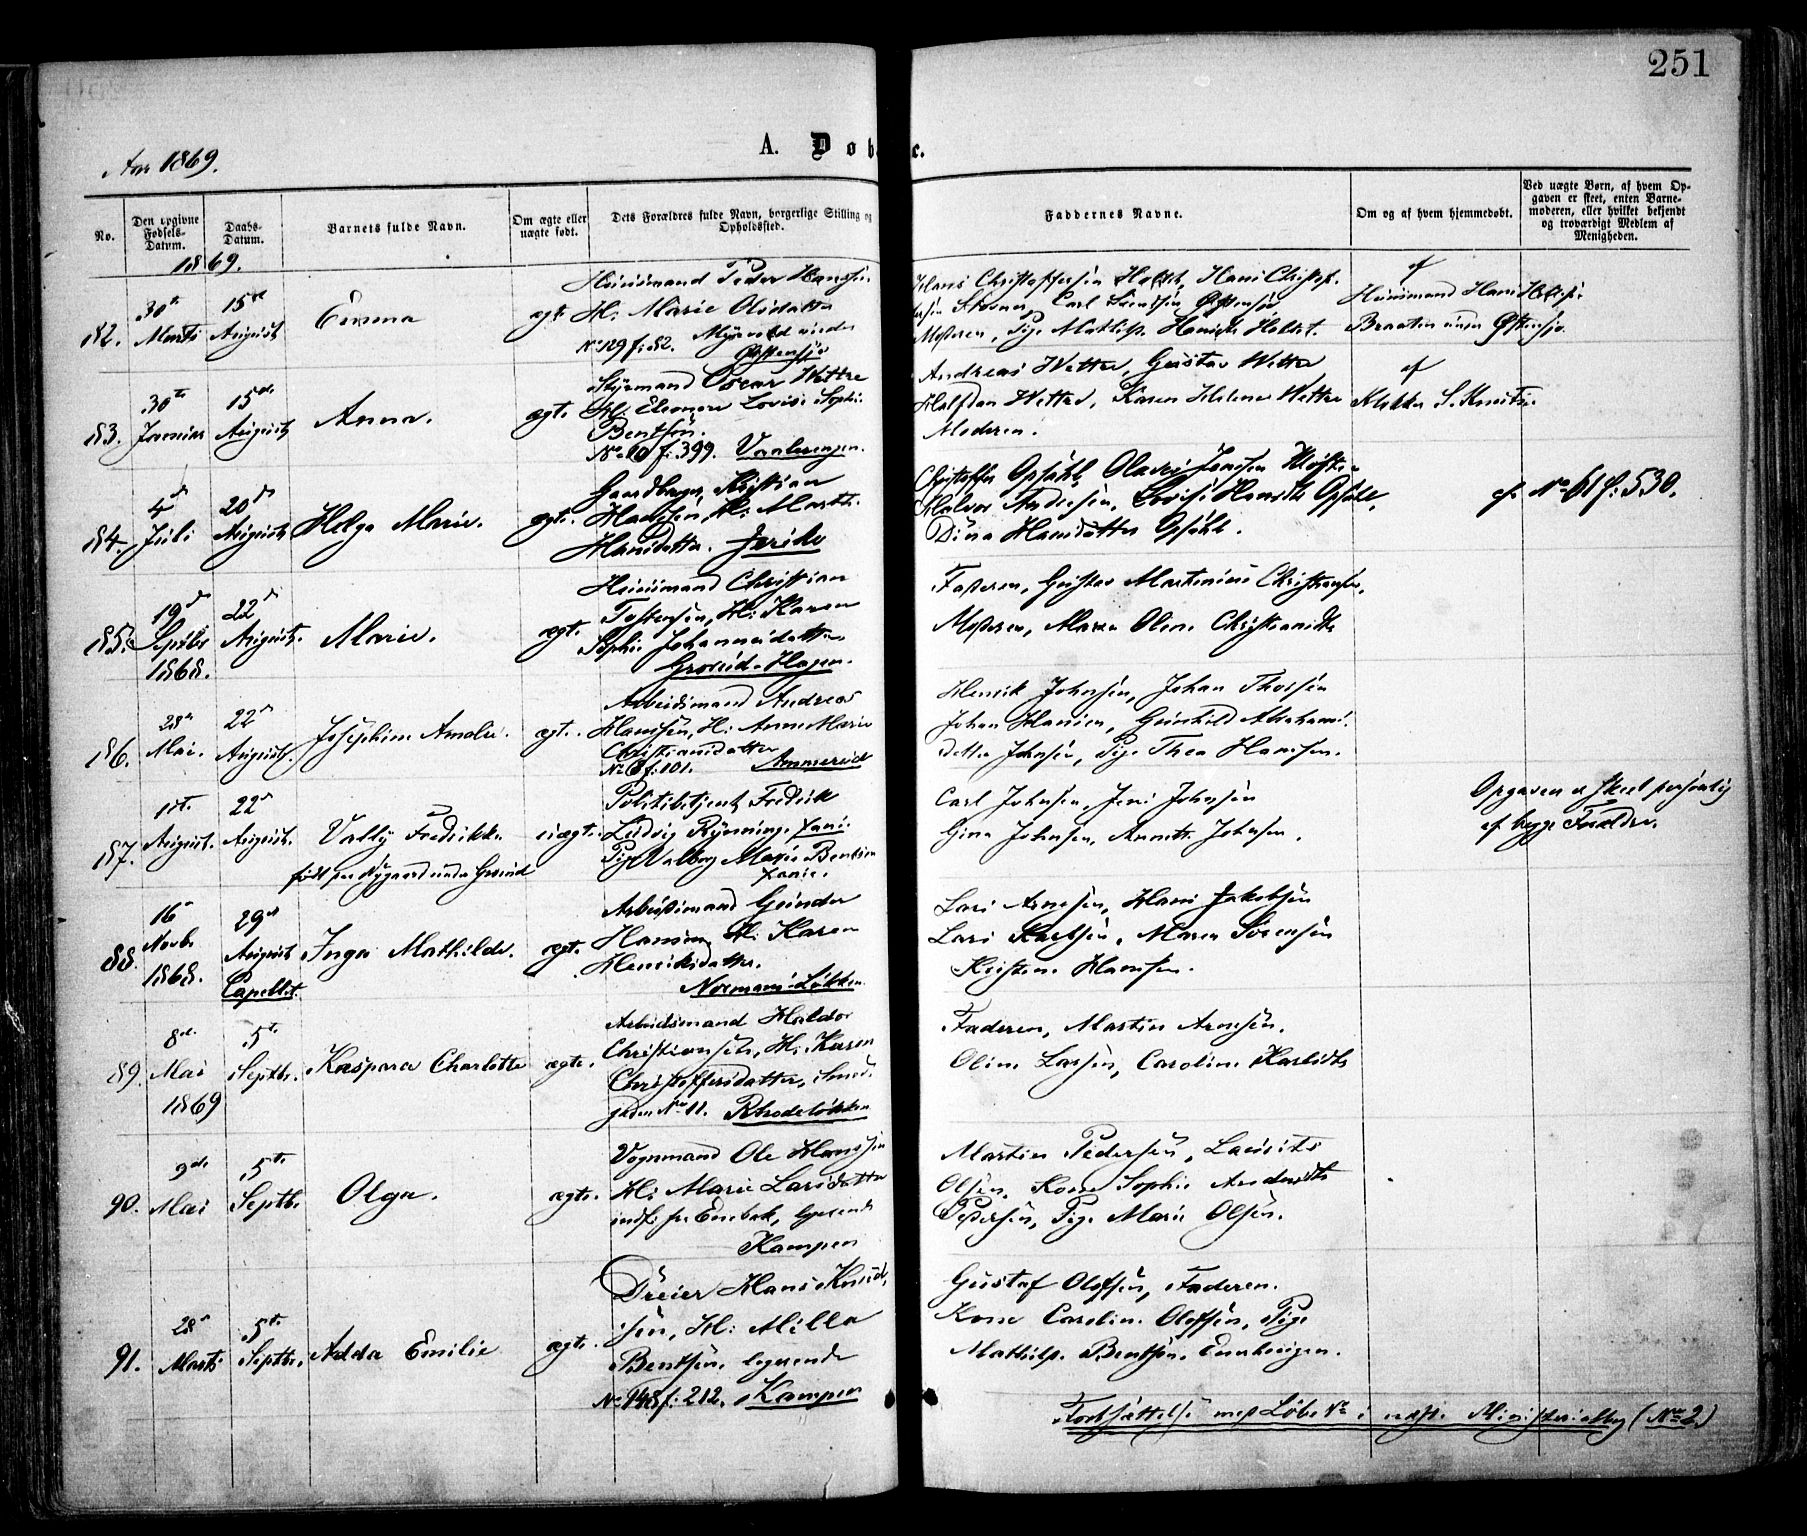 251
A. Døb c.
Aar 1869.
No.
Den opgivne Fødsels-Datum.
Daabs-Datum.
Barnets fulde Navn.
Om ægte eller uægte født.
Dets Forældres fulde Navn, borgerlige Stilling og Opholdssted.
Faddernes Navne.
Om og af hvem hjemmedøbt.
Ved uægte Børn, af hvem Opgaven er skeet, enten Barnemoderen, eller hvilket bekjendt og troværdigt Medlem af Menigheden.
1869.
182. 30te Marts
15de August
Emma
ægt.
Huusmand Peder Hanssen
H. Marie Olsdatter
No 129 f. 82.
Hans Christophersen Holst, Hans Christof-
Carl Svendsen Østensjø
Moderen, Pige
af
Huusmand Hans
Braaten under Østensjø.
183. 30te Januar
15de August
Anna.
ægt.
Styrmand Oscar Wettre
H. Eleonore Lovise Sophi.
Bentsen.
No 10 f. 399. Vaalerengen.
Andreas Wettre, Gustav Wettre
Halfdan Wettre, Karen Helene Wettre
Moderen.
af
Klokker S.
184. 4de Juli
20de August
Helga Marie.
ægt.
Gaardbruger Kristian
Hanssen, H. Marthe
Hansdatter. Jeriko
Christoffer Opsahl,
Halvor Andersen, Lovise
Dina Hansdatter Opsahl.
cf. No 61 f. 530.
185. 19de Septbr 1868.
22de August.
Marie.
ægt.
Huusmand Christian
Tostensen, H. Karen
Sophie Johannesdatter
Groruds-Hagen.
Faderen, Gustav Martinius Christiansen,
Moderen, Maren Oline Christiansdtr
186. 28de Mai.
22de August.
Josephine Amalie.
ægt.
Arbeidsmand Andreas
Hanssen, H. Anne Marie
Christiansdatter
No 6 f. 101. Ammerud
Henrik Johnsen, Johan Thorsen
Johan Hansen, Gunhild Abrahams-
datter Johnsen, Pige Thea Hanssen.
187. 1ste August.
22de August.
Valby Fredrikke.
født paa Nygaard under Grorud
uægt.
Politibetjent Fredrik
Ludvig Rynning,
Pige Valborg Marie Bentsen
Carl Johnsen, Jens Johnsen
Gina Johnsen, Annette Johnsen.
Opgaven er skeet personlig
af begge Forældre.
88. 16 Novbr 1868.
29de August Capellet.
Inga Mathilde.
ægt.
Arbeidsmand Gunder
Hansen, H. Karen
Henriksdatter.
Normans-Løkken
Lars Arnesen, Hans Jakobsen
Lars Karlsen, Maren Sørensen
Kristine Hanssen.
89. 8de Mai 1869
5te Septbr.
Kaspara Charlotte
ægte.
Arbeidsmand Haldor
Christiansen, H. Karen
Christoffersdatter, Smed-
gaden No 11. Rhodeløkken
Faderen, Martin Arnesen.
Oline Larsen, Caroline
90. 9de Mai
5te Septbr.
Olga.
ægte.
Vognmand Ole Hanssen
H. Marie Larsdatter
indf. fra Enebak, logerende
Kampen
Martin Pedersen, Laurits
Olsen, Kone Sophie Andersdtr
Pedersen, Pige Marie Olsen.
91. 28de Marts
5te Septbr.
Adda Emilie
ægte.
Dreier Hans Knud-
sen, H. Milla
Bentsen. logerende
No 148 f. 212. Kampen
Gustaf Olofsen, Faderen.
Kone Carolin. Olofsen, Pige
Mathilde Bentsen,
Fortsættelse med Løbe No i Ministerialbog (No 2.)